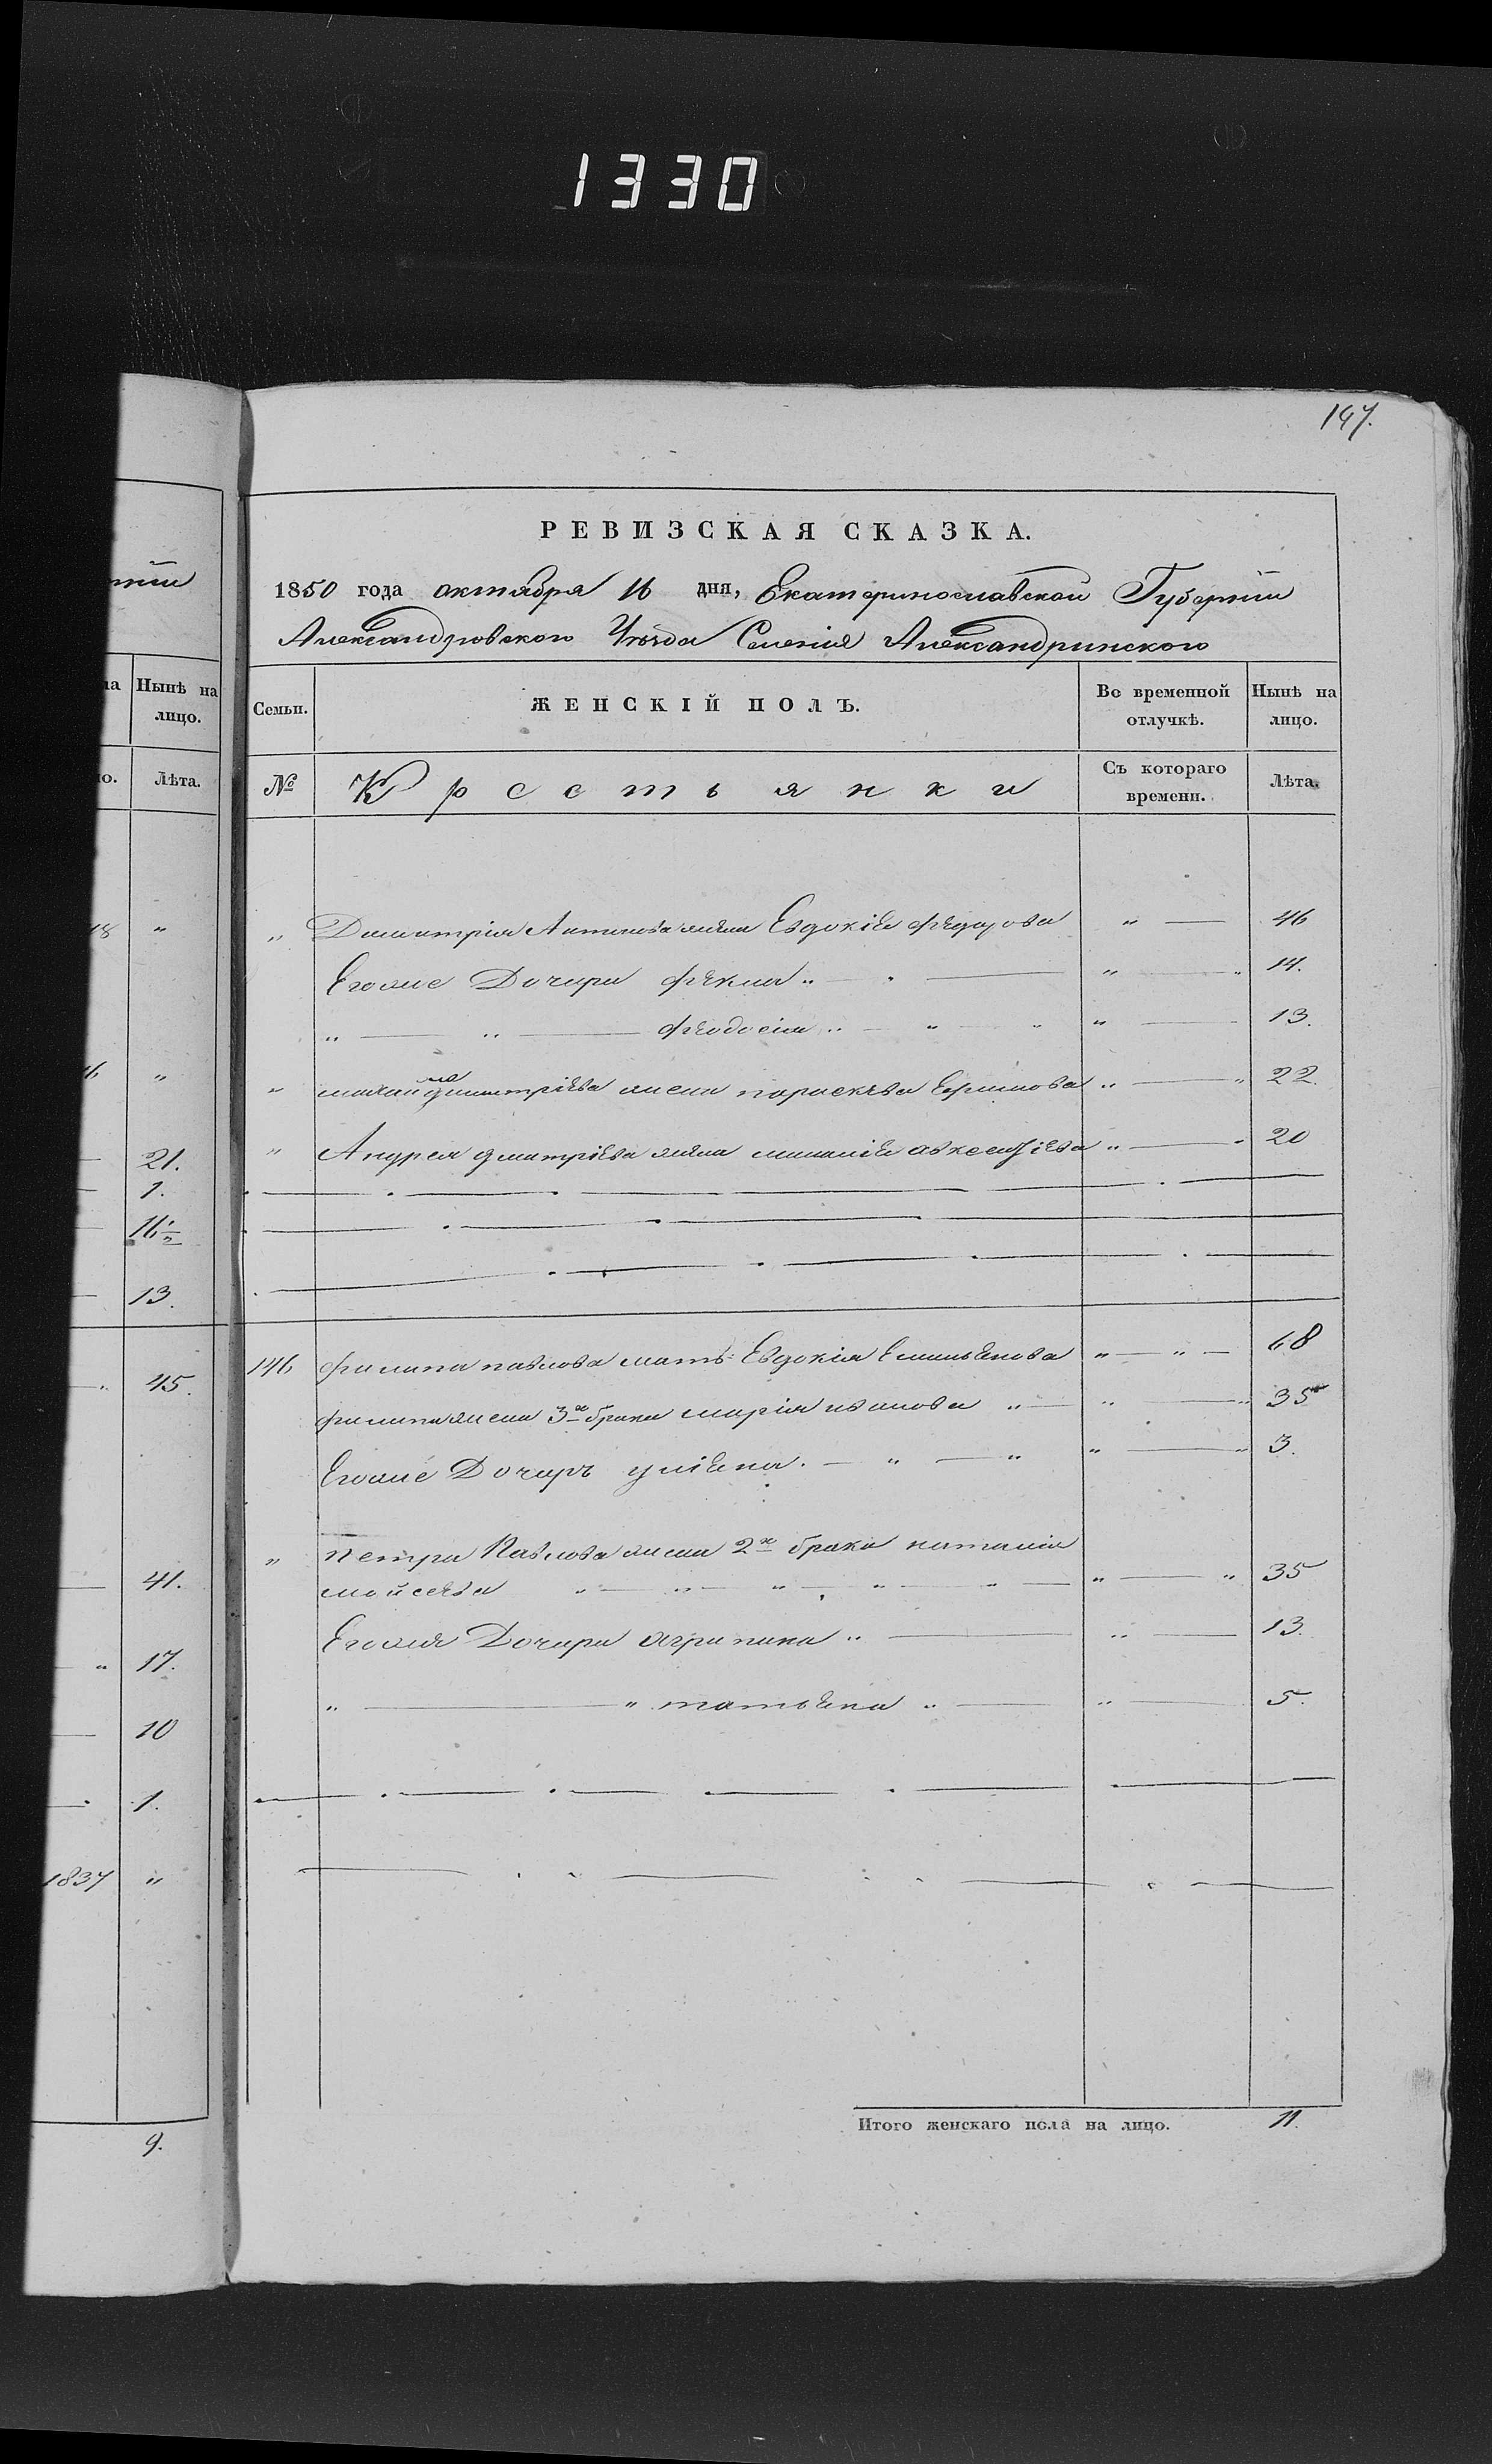 1330
147.
РЕВИЗСКАЯ СКАЗКА.
1850 года октября 16 дня, Екатеринославской Губерніи
Александровского Уѣзда Селенія Александринского
Нынѣ на лицо.
Семьи.
ЖЕНСКІЙ ПОЛЪ.
Во временной отлучкѣ.
Нынѣ на лицо.
Лѣта.
№
Крестьянки
Съ котораго времени.
Лѣта.
" Димитрія Антипова жена Евдокія Федорова " — 46
Егоже Дочери Фекла " — " — " 14.
" — " — Феодосія " — " — " " — 13.
" михайла дмитріева жена параскева Ефимова " — " 22.
" Андрея дмитріева жена миланія авксентіева " — 20
146 филипа павлова мать Евдокія Емильянова " — " — 68
филипа жена 3го брака марія иванова " — " — " 35
Егоже Дочерь уліяна. — " — " " — " 3.
" петра Павлова жена 2го брака наталія
мойсеева " — " — " — " — " — " — " 35
Егожъ Дочери агрипина " — " — 13.
" — " татьяна " — " — 5.
Итого женскаго пола на лицо. 11.
21.
1.
16 ½
13.
45.
41.
17.
10
1.
1837 "
9.